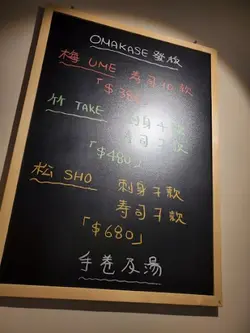 OMAKASE 發版
梅 UME 寿司 款
「$380」
竹 TAKE 刺身 款
寿司 款
「$480」
松 SHO 刺身 7 款
寿司 7 款
「$680」
手卷及湯